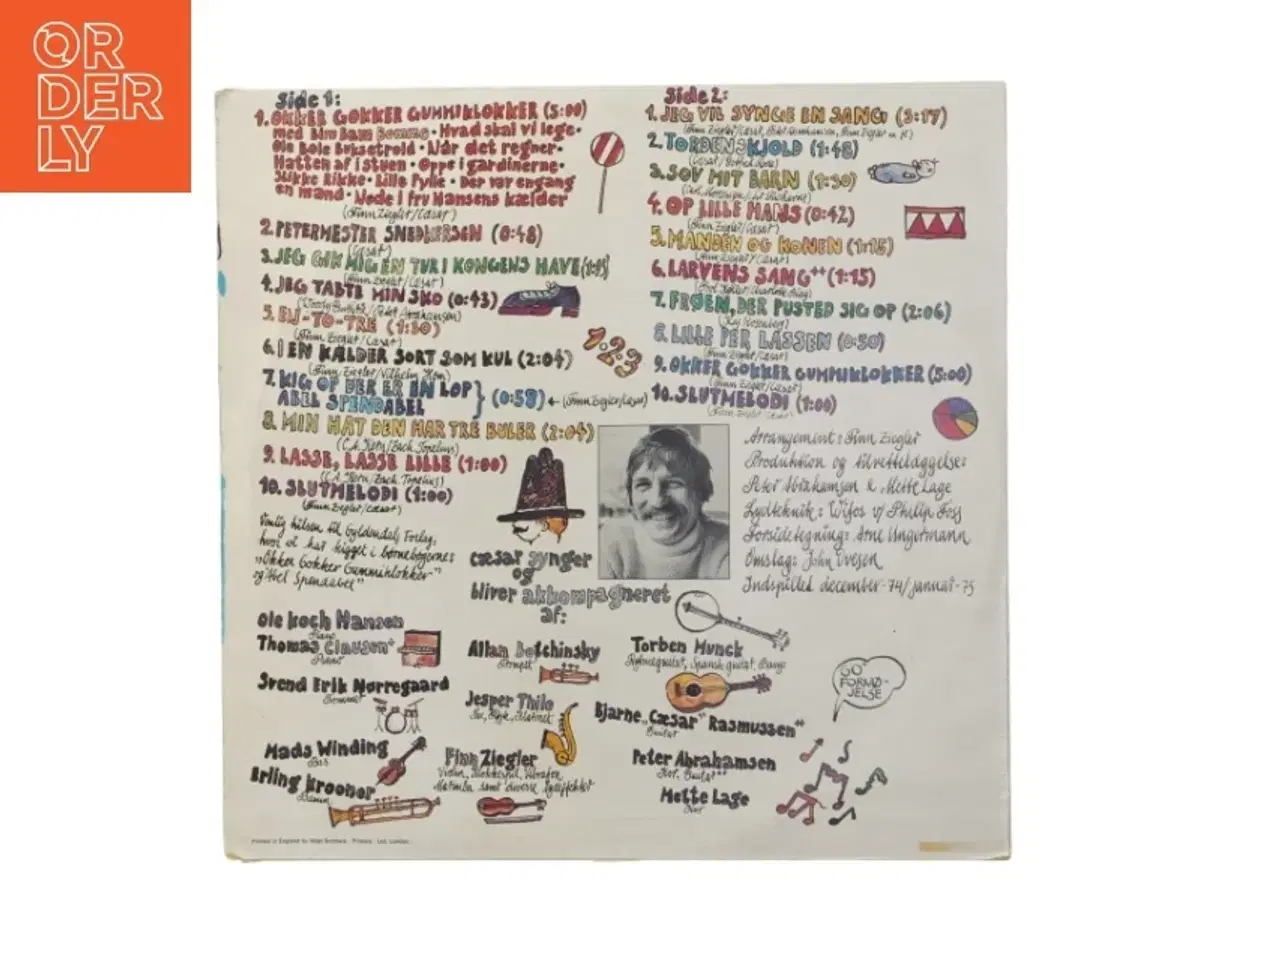 ORDERLY
Side 1:
1. OKKER GOKKER GUMMIKLOKKER (5:00)
med Bim Bam Bomme · Hvad skal vi lege ·
Ole Bole Buksetrold · Når det regner ·
Hatten af i stuen · Oppe i gardinerne ·
Sikke Rikke · Lille Pylle · Der var engang
en mand · Nede i fru Hansens kælder
(Finn Ziegler/Cæsar)
2. PETERMESTER SNEDKERSØN (0:48)
(Cæsar)
3. JEG GIK MIG EN TUR I KONGENS HAVE (1:15)
(Finn Ziegler/Cæsar)
4. JEG TABTE MIN SKO (0:43)
5. EN-TO-TRE (1:30)
(Finn Ziegler/Cæsar)
1·2·3
6. I EN KÆLDER SORT SOM KUL (2:04)
7. KIG OP DER ER EN LOP
ABEL SPENDABEL } (0:58) ← (Finn Ziegler/Cæsar)
8. MIN HAT DEN HAR TRE BULER (2:04)
9. LASSE, LASSE LILLE (1:00)
10. SLUTMELODI (1:00)
(Finn Ziegler/Cæsar)
Venlig hilsen til Gyldendals Forlag,
hvor vi har kigget i børnebøgerne:
"Okker Gokker Gummiklokker"
og "Abel Spendabel"
Side 2:
1. JEG VIL SYNGE EN SANG (3:17)
2. TORDENSKJOLD (1:48)
3. SOV MIT BARN (1:30)
4. OP LILLE HANS (0:42)
(Finn Ziegler/Cæsar)
5. MANDEN OG KONEN (1:15)
(Finn Ziegler/Cæsar)
6. LARVENS SANG++ (1:15)
7. FRØEN, DER PUSTED SIG OP (2:06)
8. LILLE PER LASSEN (0:50)
(Finn Ziegler/Cæsar)
9. OKKER GOKKER GUMMIKLOKKER (5:00)
(Finn Ziegler/Cæsar)
10. SLUTMELODI (1:00)
(Finn Ziegler/Cæsar)
Arrangement: Finn Ziegler
Produktion og tilrettelæggelse:
Peter Abrahamsen & Mette Lage
Lydteknik: Wifos v/ Philip Foss
Forsidetegning: Arne Ungermann
Omslag: John Ovesen
Indspillet december-74/januar-75
cæsar synger
og
bliver akkompagneret
af:
Ole Koch Hansen
Piano
Thomas Clausen+
Piano
Svend Erik Nørregaard
Trommer
Mads Winding
Bas
Erling Kroner
Basun
Allan Botchinsky
Trompet
Jesper Thilo
Finn Ziegler
Torben Munck
Rytmeguitar, Spansk guitar, Banjo
Bjarne "Cæsar" Rasmussen++
Guitar
Peter Abrahamsen
Kor, Guitar++
Mette Lage
Kor
GO'
FORNØ-
JELSE